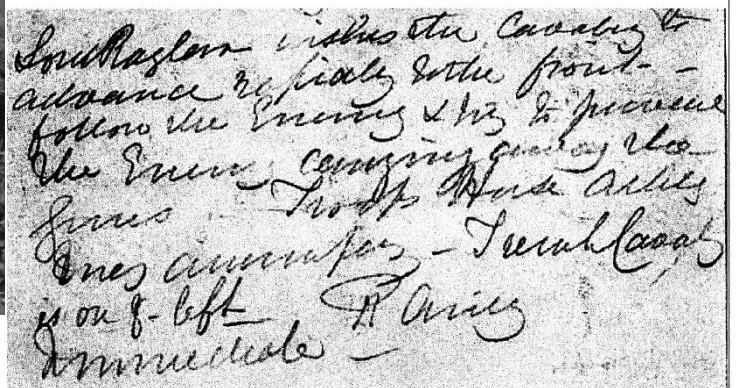 Lord Raglan wishes the Cavalry to
advance rapidly to the front -
follow the Enemy & try to prevent
the Enemy carrying away the
guns - Troop Horse Artillery
may accompany - French Cavalry
is on yr left R Airey
Immediate -